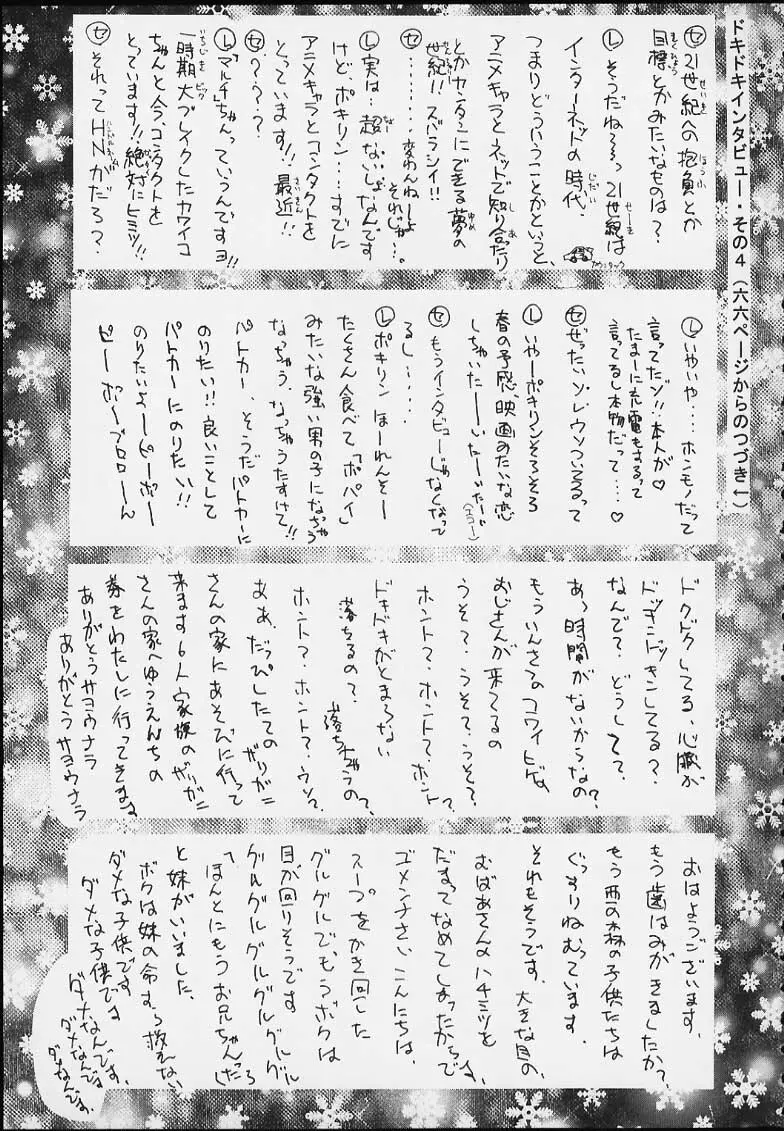 ドキドキインタビュー・その4（六六ページからのつづき←）
セ 21世紀への抱負とか
目標とかみたいなものは？
レ そうだね～～っ 21世紀は
インターネットの時代、
つまりどういうことかというと、
アニメキャラとネットで知り合ったり
とかカンタンにできる夢の
世紀!! ズバラシイ!!
セ ………変わんねーよ
それじゃ…。
レ 実は…超ないしょなんです
けど、ポキリン…すでに
アニメキャラとコンタクトを
とっています!! 最近!!
セ ？？？
レ「マルチ」ちゃんっていうんですヨ!!
一時期大ブレイクしたカワイコ
ちゃんと今、コンタクトを
とっています!! 絶対にヒミツ!!
セ それってHNがだろ？
レ いやいや….ホンモノだって
言ってたゾ!! 本人が♡
たまーに充電もするって
言ってるし本物だって….♡
セ ぜったいソレウソついてるって
レ いやーポキリンそろそろ
春の予感、映画みたいな恋
しちゃいたーーいたーいたーい
（エコー）
セ もうインタビューじゃなくなって
るし…..
レ ポキリン ほーれんそー
たくさん食べて「ポパイ」
みたいな強い男の子になっちゃう
なっちゃう、なっちゃうたすけて!!
パトカー、そうだパトカーに
のりたい!! 良いことして
パトカーにのりたい!!
のりたいよーーピーポー
ピーポーブロローーん
ドクドクしてる、心臓が
ドッキンドッキンしてる？
なんで？どうして？
あっ時間がないからなの？
もういんさつのコワイヒゲ
おじさんが来てるの
うそ？うそ？うそ？
ホント？ホント？ホント？
ドキドキがとまらない
落ちるの？落ちちゃうの？
ホント？ホント？ウソ？
ああ、だっぴしたての ザリガニ
さんの家にあそびに行って
来ます 6人家族のザリガニ
さんの家へゆうえんちの
券をわたしに行ってきます
ありがとうサヨウナラ
ありがとうサヨウナラ
おはようございます、
もう歯はみがきましたか？
もう西の森の子供たちは
ぐっすりねむっています、
それもそうです、大きな目の、
おばあさんのハチミツを
だまってなめてしまったからです、
ゴメンナさい、こんにちは、
スープをかき回した
グルグルでもうボクは
目が回りそうです
グルグルグルグルグルグル
「ほんとにもうお兄ちゃんったら」
と妹がいいました、
ボクは妹の命すら救えない
ダメな子供です
ダメな子供です
ダメなんです、
ダメなんです、
ダメなんです、